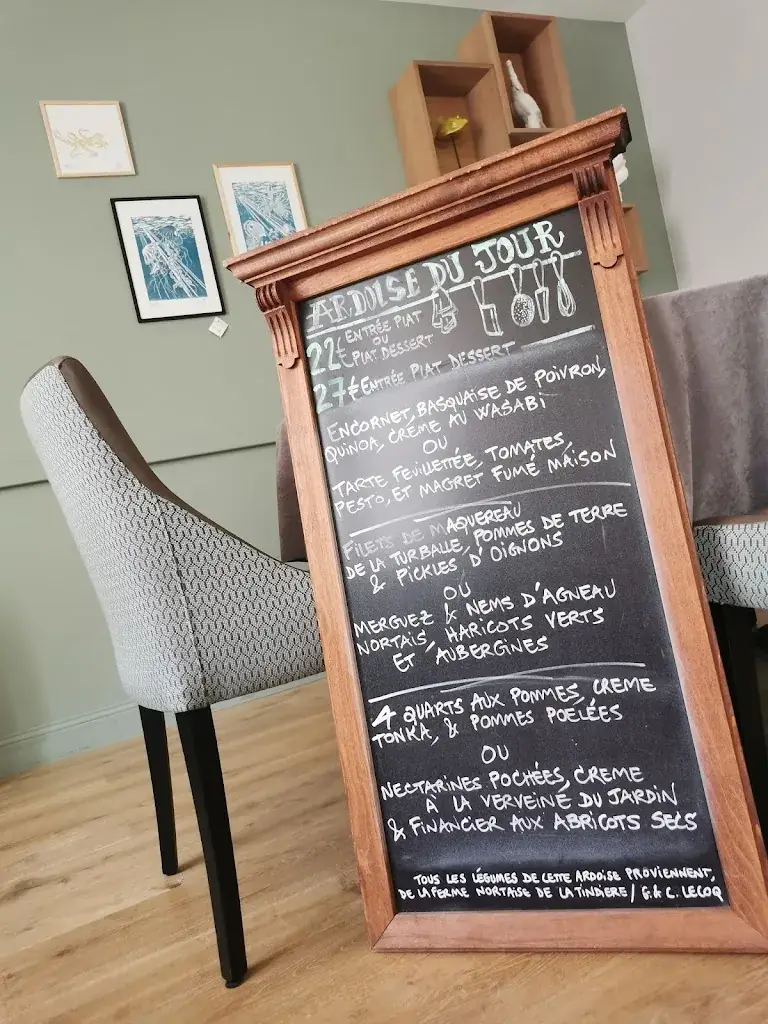 ARDOISE DU JOUR
22€ ENTRÉE PLAT
OU
PLAT DESSERT
27€ ENTRÉE PLAT DESSERT
ENCORNET, BASQUAISE DE POIVRON,
QUINOA, CRÈME AU WASABI
OU
TARTE FEUILLETTÉE, TOMATES,
PESTO, ET MAGRET FUMÉ MAISON
FILETS DE MAQUEREAU
DE LA TURBALLE, POMMES DE TERRE
& PICKLES D'OIGNONS
OU
MERGUEZ & NEMS D'AGNEAU
NORTAIS, HARICOTS VERTS
ET AUBERGINES
4 QUARTS AUX POMMES, CREME
TONKA, & POMMES POÊLÉES
OU
NECTARINES POCHÉES, CREME
À LA VERVEINE DU JARDIN
& FINANCIER AUX ABRICOTS SECS
TOUS LES LÉGUMES DE CETTE ARDOISE PROVIENNENT,
DE LA FERME NORTAISE DE LA TINDIERE / G. & C. LECOQ